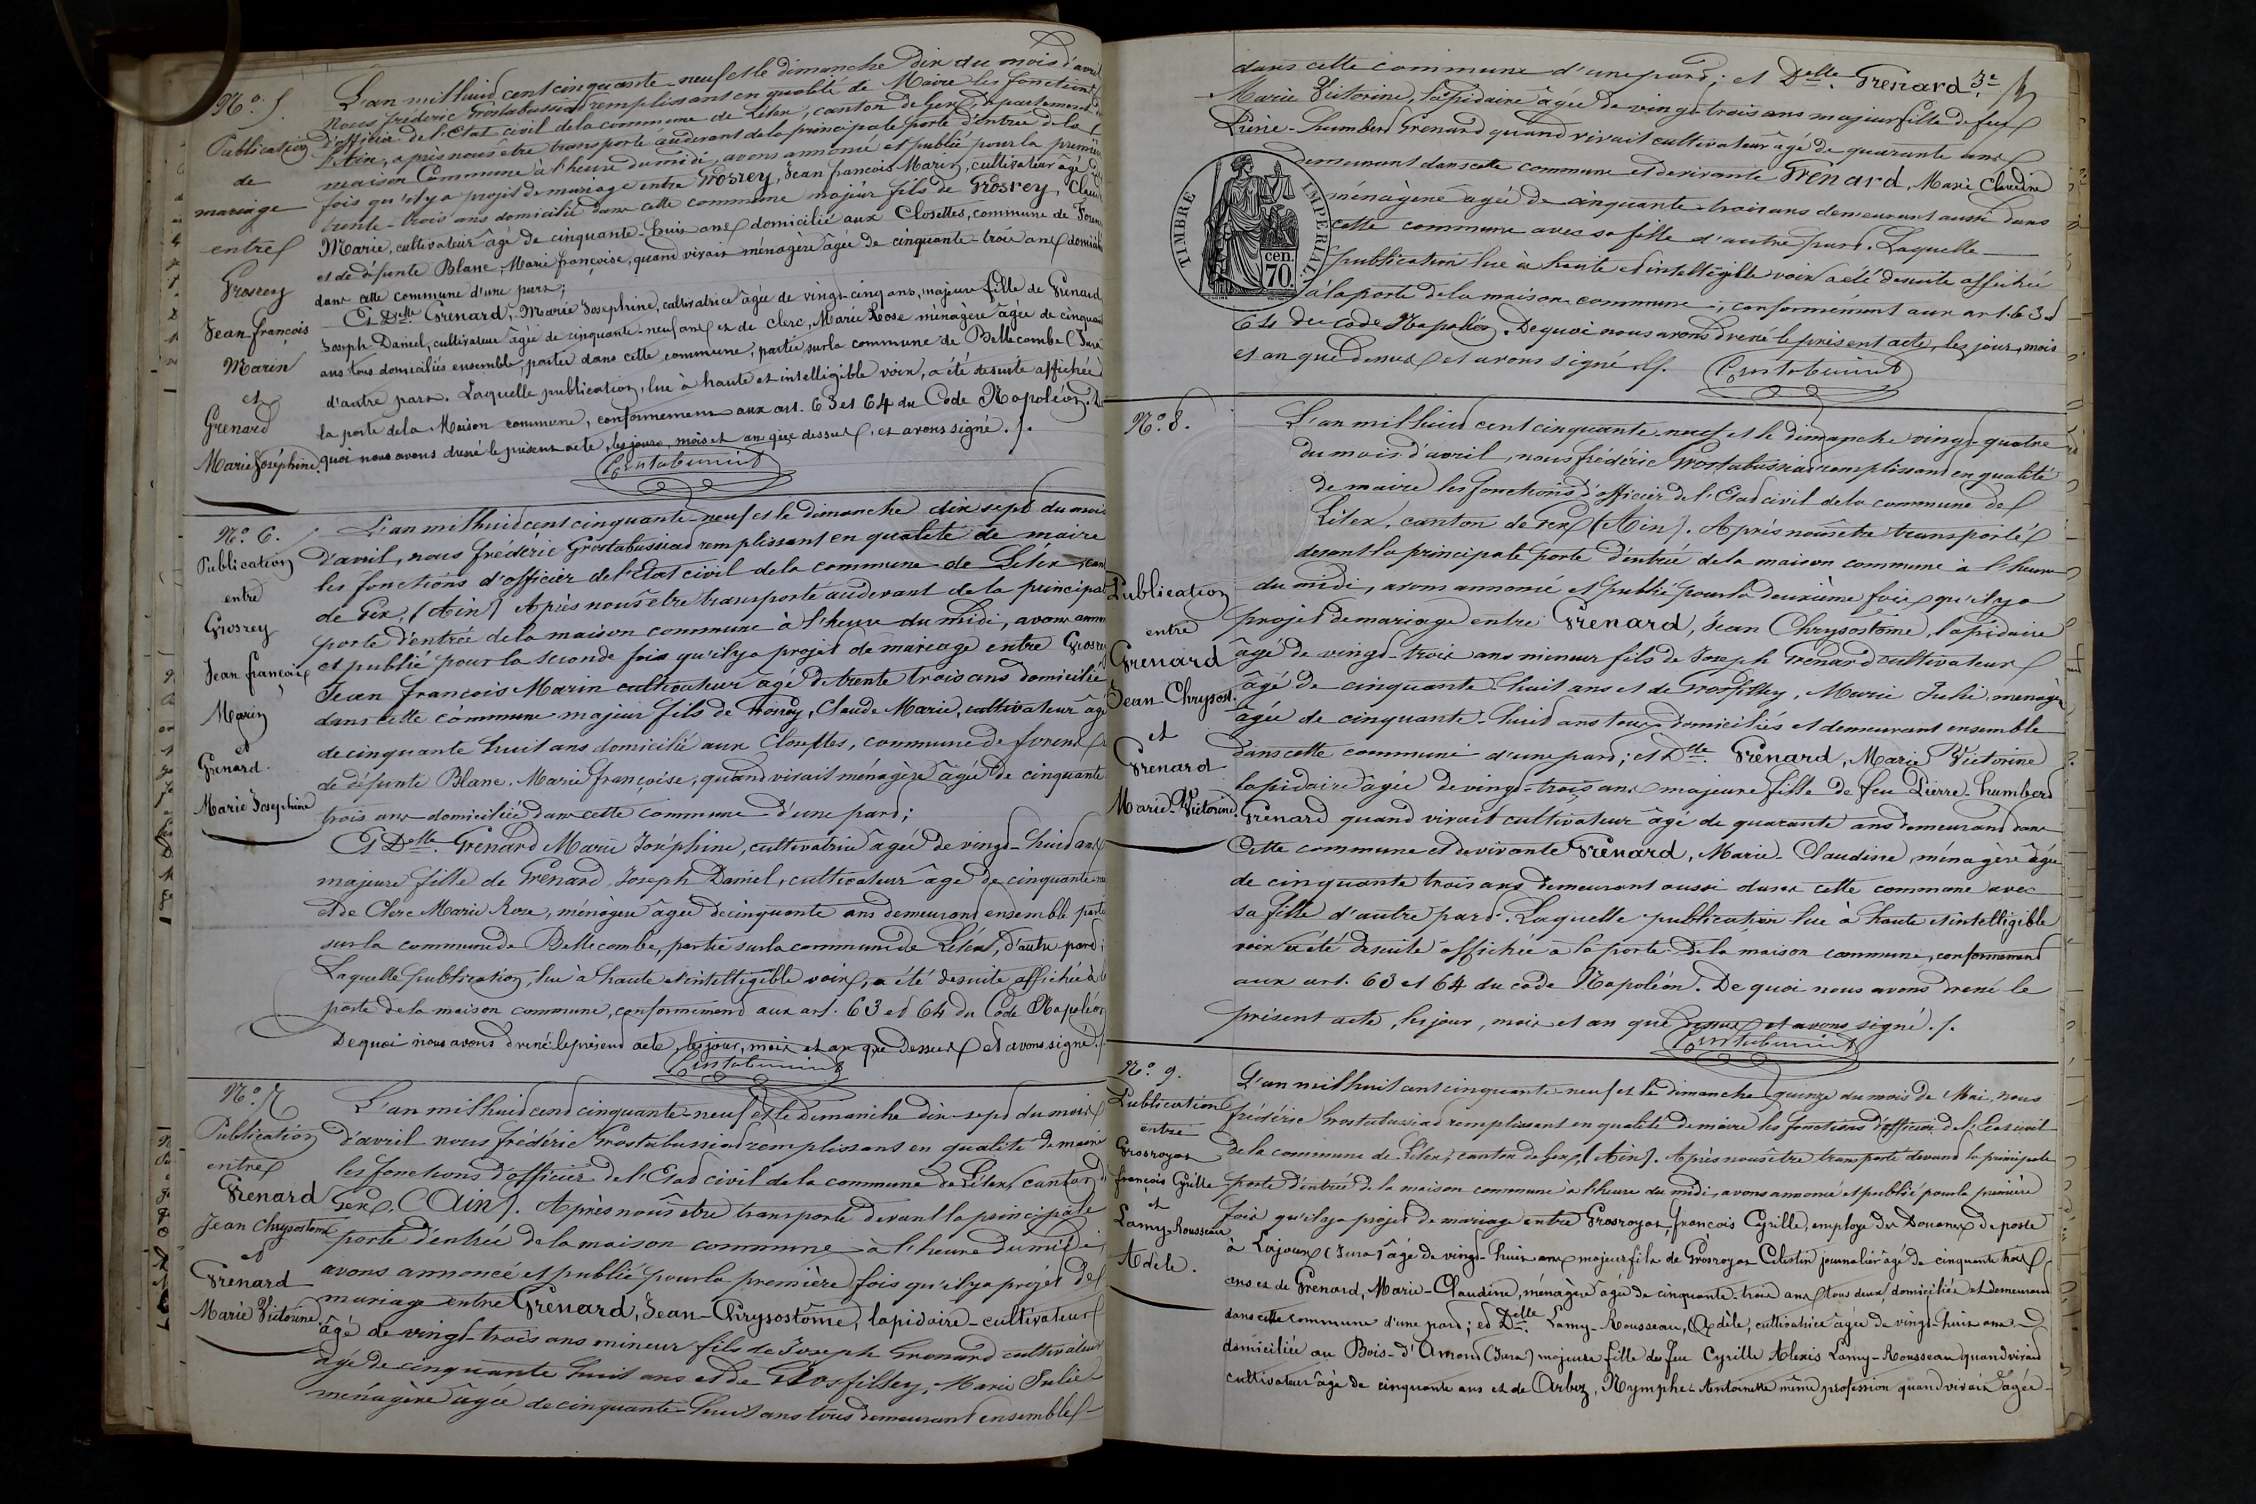 N.o 5.
Publication
de
mariage
entre
Grosrey
Jean françois
Marin
et
Grenard
Marie Joséphine.
L'an mil huit cent cinquante-neuf et le dimanche dix du mois d'avril
Nous frédéric Grostabussiat remplissant en qualité de Maire les fonctions
d'officier de l'Etat civil de la commune de Lélex, canton de Gex, département
l'Ain, après nous être transporté audevant de la principale porte d'entrée de la
maison Commune à l'heure du midi, avons annoncé et publié pour la première
fois qu'il y a projet de mariage entre Grosrey, Jean françois Marin, cultivateur âgé
trente-trois ans domicilié dans cette commune majeur fils de Grosrey, Claude
Marie, cultivateur âgé de cinquante-huit ans domicilié aux Closettes, commune de
et de défunte Blanc, Marie françoise, quand vivait ménagère âgée de cinquante-trois ans
dans cette commune d'une part;
Et Delle Grenard, Marie Josephine, cultivatrice âgée de vingt-cinq ans, majeure fille de Grenard
Joseph Daniel, cultivateur âgé de cinquante-neuf ans et de Clerc, Marie Rose ménagère âgée de cinquante
ans tous domiciliés ensemble, partie dans cette commune, partie sur la commune de Bellecombe (Jura
d'autre part. Laquelle publication, lue à haute et intelligible voix, a été desuite affichée à
la porte de la Maison commune, conformement aux art. 63 et 64 du Code Napoléon. De
quoi nous avons dressé le présent acte, les jours, mois et an que dessus, et avons signé ./.
N.o 6.
Publication
entre
Grosrey
Jean françois
Marin
et
Grenard.
Marie Josephine
L'an mil huit cent cinquante-neuf et le dimanche dix sept du mois
d'avril, nous frédéric Grostabussiat remplissant en qualité de maire
les fonctions d'officier de l'Etat civil de la commune de Lélex,
de Gex, (Ain) Après nous être transporté audevant de la principale
porte d'entrée de la maison commune à l'heure du midi, avons
et publié pour la seconde fois qu'il y a projet de mariage entre Grosrey
Jean françois Marin cultivateur âgé de trente trois ans domicilié
dans cette commune majeur fils de Grosrey, Claude Marie, cultivateur âgé
de cinquante huit ans domicilié aux Closettes, commune de
de défunte Blanc, Marie françoise, quand vivait ménagère âgée de cinquante
trois ans domiciliée dans cette commune d'une part;
Et Delle Grenard Marie Joséphine, cultivatrice âgée de vingt-huit ans
majeure fille de Grenard Joseph Daniel, cultivateur âgé de cinquante
et de Clerc Marie Rose, ménagère âgée de cinquante ans demeurant ensemble partie
sur la commune de Bellecombe, partie sur la commune de Lélex, d'autre part;
Laquelle publication, lue à haute et intelligible voix, a été desuite affichée à la
porte de la maison commune, conformément aux art. 63 et 64 du Code Napoléon
De quoi nous avons dressé le présent acte, les jour, mois et an que Dessus et avons signé.
N.o 7
Publication
entre
Grenard
Jean Chrysostome
et
Grenard
Marie Victorine.
L'an mil huit cent cinquante-neuf et le Dimanche dix-sept du mois
d'avril nous frédéric Grostabussiat remplissant en qualité de maire
les fonctions d'officier de l'Etat civil de la commune de Lélex, canton de
Gex, (Ain). Après nous être transporté devant la principale
porte d'entrée de la maison commune à l'heure du midi,
avons annoncé et publié pour la première fois qu'il y a projet de
mariage entre Grenard, Jean-Chrysostôme, lapidaire-cultivateur
âgé de vingt-trois ans mineur fils de Joseph Grenard cultivateur
âgé de cinquante huit ans et de Grosfilley, Marie Julie
ménagère âgée de cinquante-huit ans tous demeurant ensemble
3e
dans cette commune d'une part; et Delle Grenard
Marie Victorine, lapidaire âgée de vingt-trois ans majeur fille de feu
Pierre-humbert Grenard quand vivait cultivateur âgé de quarante ans
demeurant dans cette commune et de vivante Grenard, Marie Claudine
ménagère âgée de cinquante-trois ans demeurant aussi dans
cette commune avec sa fille d'autre part. Laquelle
publication lue à haute et intelligible voix a été desuite affichée
à la porte de la maison commune, conformément aux art. 63 et
64 du Code Napoléon. De quoi nous avons dressé le présent acte, les jour, mois
et an que dessus et avons signé ./.
TIMBRE IMPERIAL
70. cen.
N.o 8.
Publication
entre
Grenard
Jean-Chrysost.
et
Grenard
Marie-Victorine.
L'an mil huit cent cinquante neuf et le dimanche vingt-quatre
du mois d'avril, nous frédéric Grostabussiat remplissant en qualité
de maire les fonctions d'officier de l'Etat civil de la commune de
Lélex, canton de Gex (Ain). Après nous être transporté
devant la principale porte d'entrée de la maison commune à l'heure
du midi, avons annoncé et publié pour la deuxième fois qu'il y a
projet de mariage entre Grenard, Jean Chrysostôme, lapidaire
âgé de vingt-trois ans mineur fils de Joseph Grenard cultivateur
âgé de cinquante-huit ans et de Grosfilley, Marie Julie, ménagère
âgée de cinquante-huit ans tous domiciliés et demeurant ensemble
dans cette commune d'une part; et Delle Grenard, Marie Victorine
lapidaire âgée de vingt-trois ans majeure fille de feu Pierre-humbert
Grenard quand vivait cultivateur âgé de quarante ans demeurant dans
Cette commune et de vivante Grenard, Marie-Claudine, ménagère âgée
de cinquante trois ans demeurant aussi dans cette commune avec
sa fille d'autre part. Laquelle publication lue à haute et intelligible
voix a été desuite affichée à la porte de la maison commune, conformement
aux art. 63 et 64 du code Napoléon. De quoi nous avons dressé le
présent acte, les jour, mois et an que dessus et avons signé ./.
N.o 9.
Publication
entre
Grosroyat
françois Cyrille
et
Lamy-Rousseau
Adèle.
L'an mil huit cent cinquante neuf et le dimanche quinze du mois de Mai, nous
frédéric Grostabussiat remplissant en qualité de maire les fonctions d'officier de l'Etat civil
de la commune de Lélex, canton de Gex, (Ain). Après nous être transporté devant la principale
porte d'entrée de la maison commune à l'heure du midi, avons annoncé et publié pour la première
fois qu'il y a projet de mariage entre Grosroyat, françois Cyrille, employé des Douanes de poste
à Lajoux (Jura) âgé de vingt-huit ans majeur fils de Grosroyat Célestin journalier âgé de cinquante trois
ans et de Grenard, Marie-Claudine, ménagère âgée de cinquante-trois ans tous deux domiciliés et demeurant
dans cette commune d'une part; et Delle Lamy-Rousseau, Adèle, cultivatrice âgée de vingt-huit ans
domiciliée au Bois-d'Amont (Jura) majeure fille de feu Cyrille Alexis Lamy-Rousseau quand vivait
cultivateur âgé de cinquante ans et de Arbez, Nymphe-Antoinette même profession quand vivait âgée